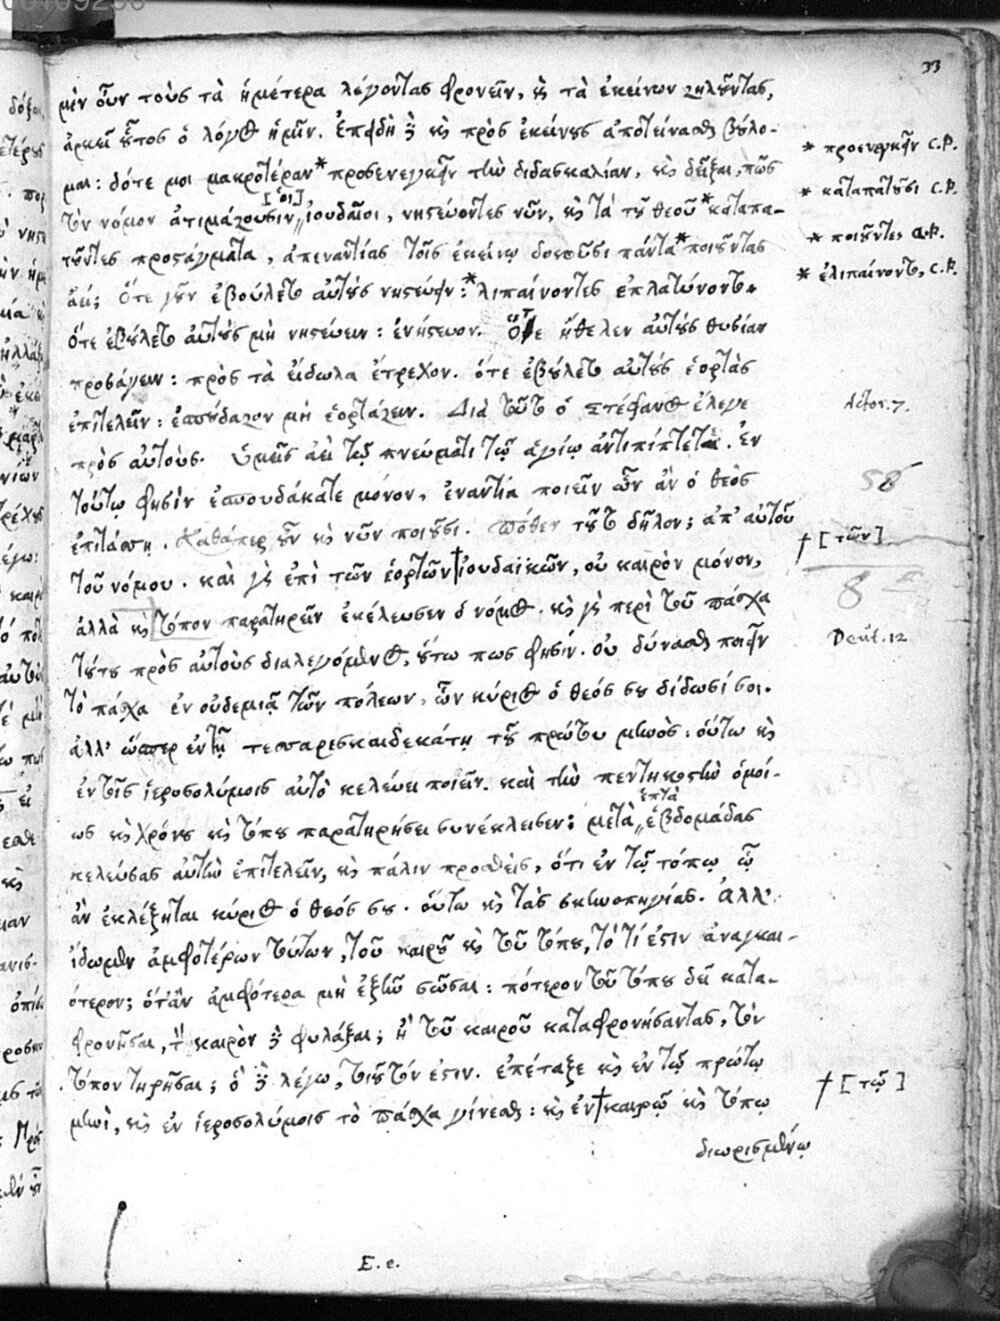 33
μὲν οὖν τοὺς τὰ ἡμέτερα λέγοντας φρονεῖν, καὶ τὰ ἐκείνων ζηλοῦντας,
ἀρκεῖ οὗτος ὁ λόγος ἡμῖν. ἐπειδὴ δὲ καὶ πρὸς ἐκείνους ἀποτείνασθαι βούλο-
μαι: δότε μοι μακροτέραν* προσενεγκεῖν τὴν διδασκαλίαν, καὶ δεῖξαι, πῶς
* προενεγκεῖν C.P.
[οἱ]
τὸν νόμον ἀτιμάζουσιν,, ἰουδαῖοι, νηστεύοντες νῦν, καὶ τὰ τοῦ θεοῦ* καταπα-
* καταπατοῦσι C.P.
τοῦντες προστάγματα, ἀπεναντίας τοῖς ἐκείνῳ δοκοῦσι πάντα* ποιοῦντας
* ποιοῦντες
ἀεί; ὅτε γοῦν ἐβούλετο αὐτοὺς νηστεύειν:* λιπαίνοντες ἐπλατύνοντο.
* ἐλιπαίνοντο, C.P.
ὅτε ἐβούλετο αὐτοὺς μὴ νηστεύειν: ἐνήστευον. ὅτε ἤθελεν αὐτοὺς θυσίαν
προσάγειν: πρὸς τὰ εἴδωλα ἔτρεχον. ὅτε ἐβούλετο αὐτοὺς ἑορτὰς
ἐπιτελεῖν: ἐσπούδαζον μὴ ἑορτάζειν. Διὰ τοῦτο ὁ Στέφανος ἔλεγε
Actor. 7.
πρὸς αὐτούς. Ὑμεῖς ἀεὶ τῷ πνεύματι τῷ ἁγίῳ ἀντιπίπτετε. Ἐν
τούτῳ φησὶν ἐσπουδάκατε μόνον, ἐναντία ποιεῖν ὧν ἂν ὁ θεὸς
58
ἐπιτάσσῃ. Καθάπερ οὖν καὶ νῦν ποιοῦσι. πόθεν τοῦτο δῆλον; ἀπ' αὐτοῦ
† [τῶν]
τοῦ νόμου. καὶ γὰρ ἐπὶ τῶν ἑορτῶν† ἰουδαϊκῶν, οὐ καιρὸν μόνον,
8
ἀλλὰ καὶ τόπον παρατηρεῖν ἐκέλευσεν ὁ νόμος. καὶ γὰρ περὶ τοῦ πάσχα
τούτου πρὸς αὐτοὺς διαλεγόμενος, οὕτω πως φησίν. οὐ δύνασθαι ποιεῖν
Deut. 12
τὸ πάσχα ἐν οὐδεμιᾷ τῶν πόλεων, ὧν κύριος ὁ θεός σου δίδωσί σοι.
ἀλλ' ὥσπερ ἐν τῇ τεσσαρεσκαιδεκάτῃ τοῦ πρώτου μηνὸς: οὕτω καὶ
ἐν τοῖς ἱεροσολύμοις αὐτὸ κελεύει ποιεῖν. καὶ τὴν πεντηκοστὴν ὁμοί-
ἑπτὰ
ως καὶ χρόνου καὶ τόπου παρατηρήσει συνέκλεισεν: μετὰ,, ἑβδομάδας
κελεύσας αὐτὴν ἐπιτελεῖν, καὶ πάλιν προσθεὶς, ὅτι ἐν τῷ τόπῳ ᾧ
ἂν ἐκλέξηται κύριος ὁ θεός σου. οὕτω καὶ τὰς σκηνοπηγίας. Ἀλλ'
ἴδωμεν ἀμφοτέρων τούτων, τοῦ καιροῦ καὶ τοῦ τόπου, τὸ τί ἐστιν ἀναγκαι-
ότερον; ὅταν ἀμφότερα μὴ ἐξῇ σῶσαι: πότερον τοῦ τόπου δεῖ κατα-
φρονῆσαι, τὸν καιρὸν δὲ φυλάξαι; ἢ τοῦ καιροῦ καταφρονήσαντας, τὸν
τόπον τηρῆσαι; ὃ δὲ λέγω, τοιοῦτόν ἐστιν. ἐπέταξε καὶ ἐν τῷ πρώτῳ
† [τῷ]
μηνὶ, καὶ ἐν ἱεροσολύμοις τὸ πάσχα γίνεσθαι: καὶ ἐν† καιρῷ καὶ τόπῳ
διωρισμένῳ
E. e.